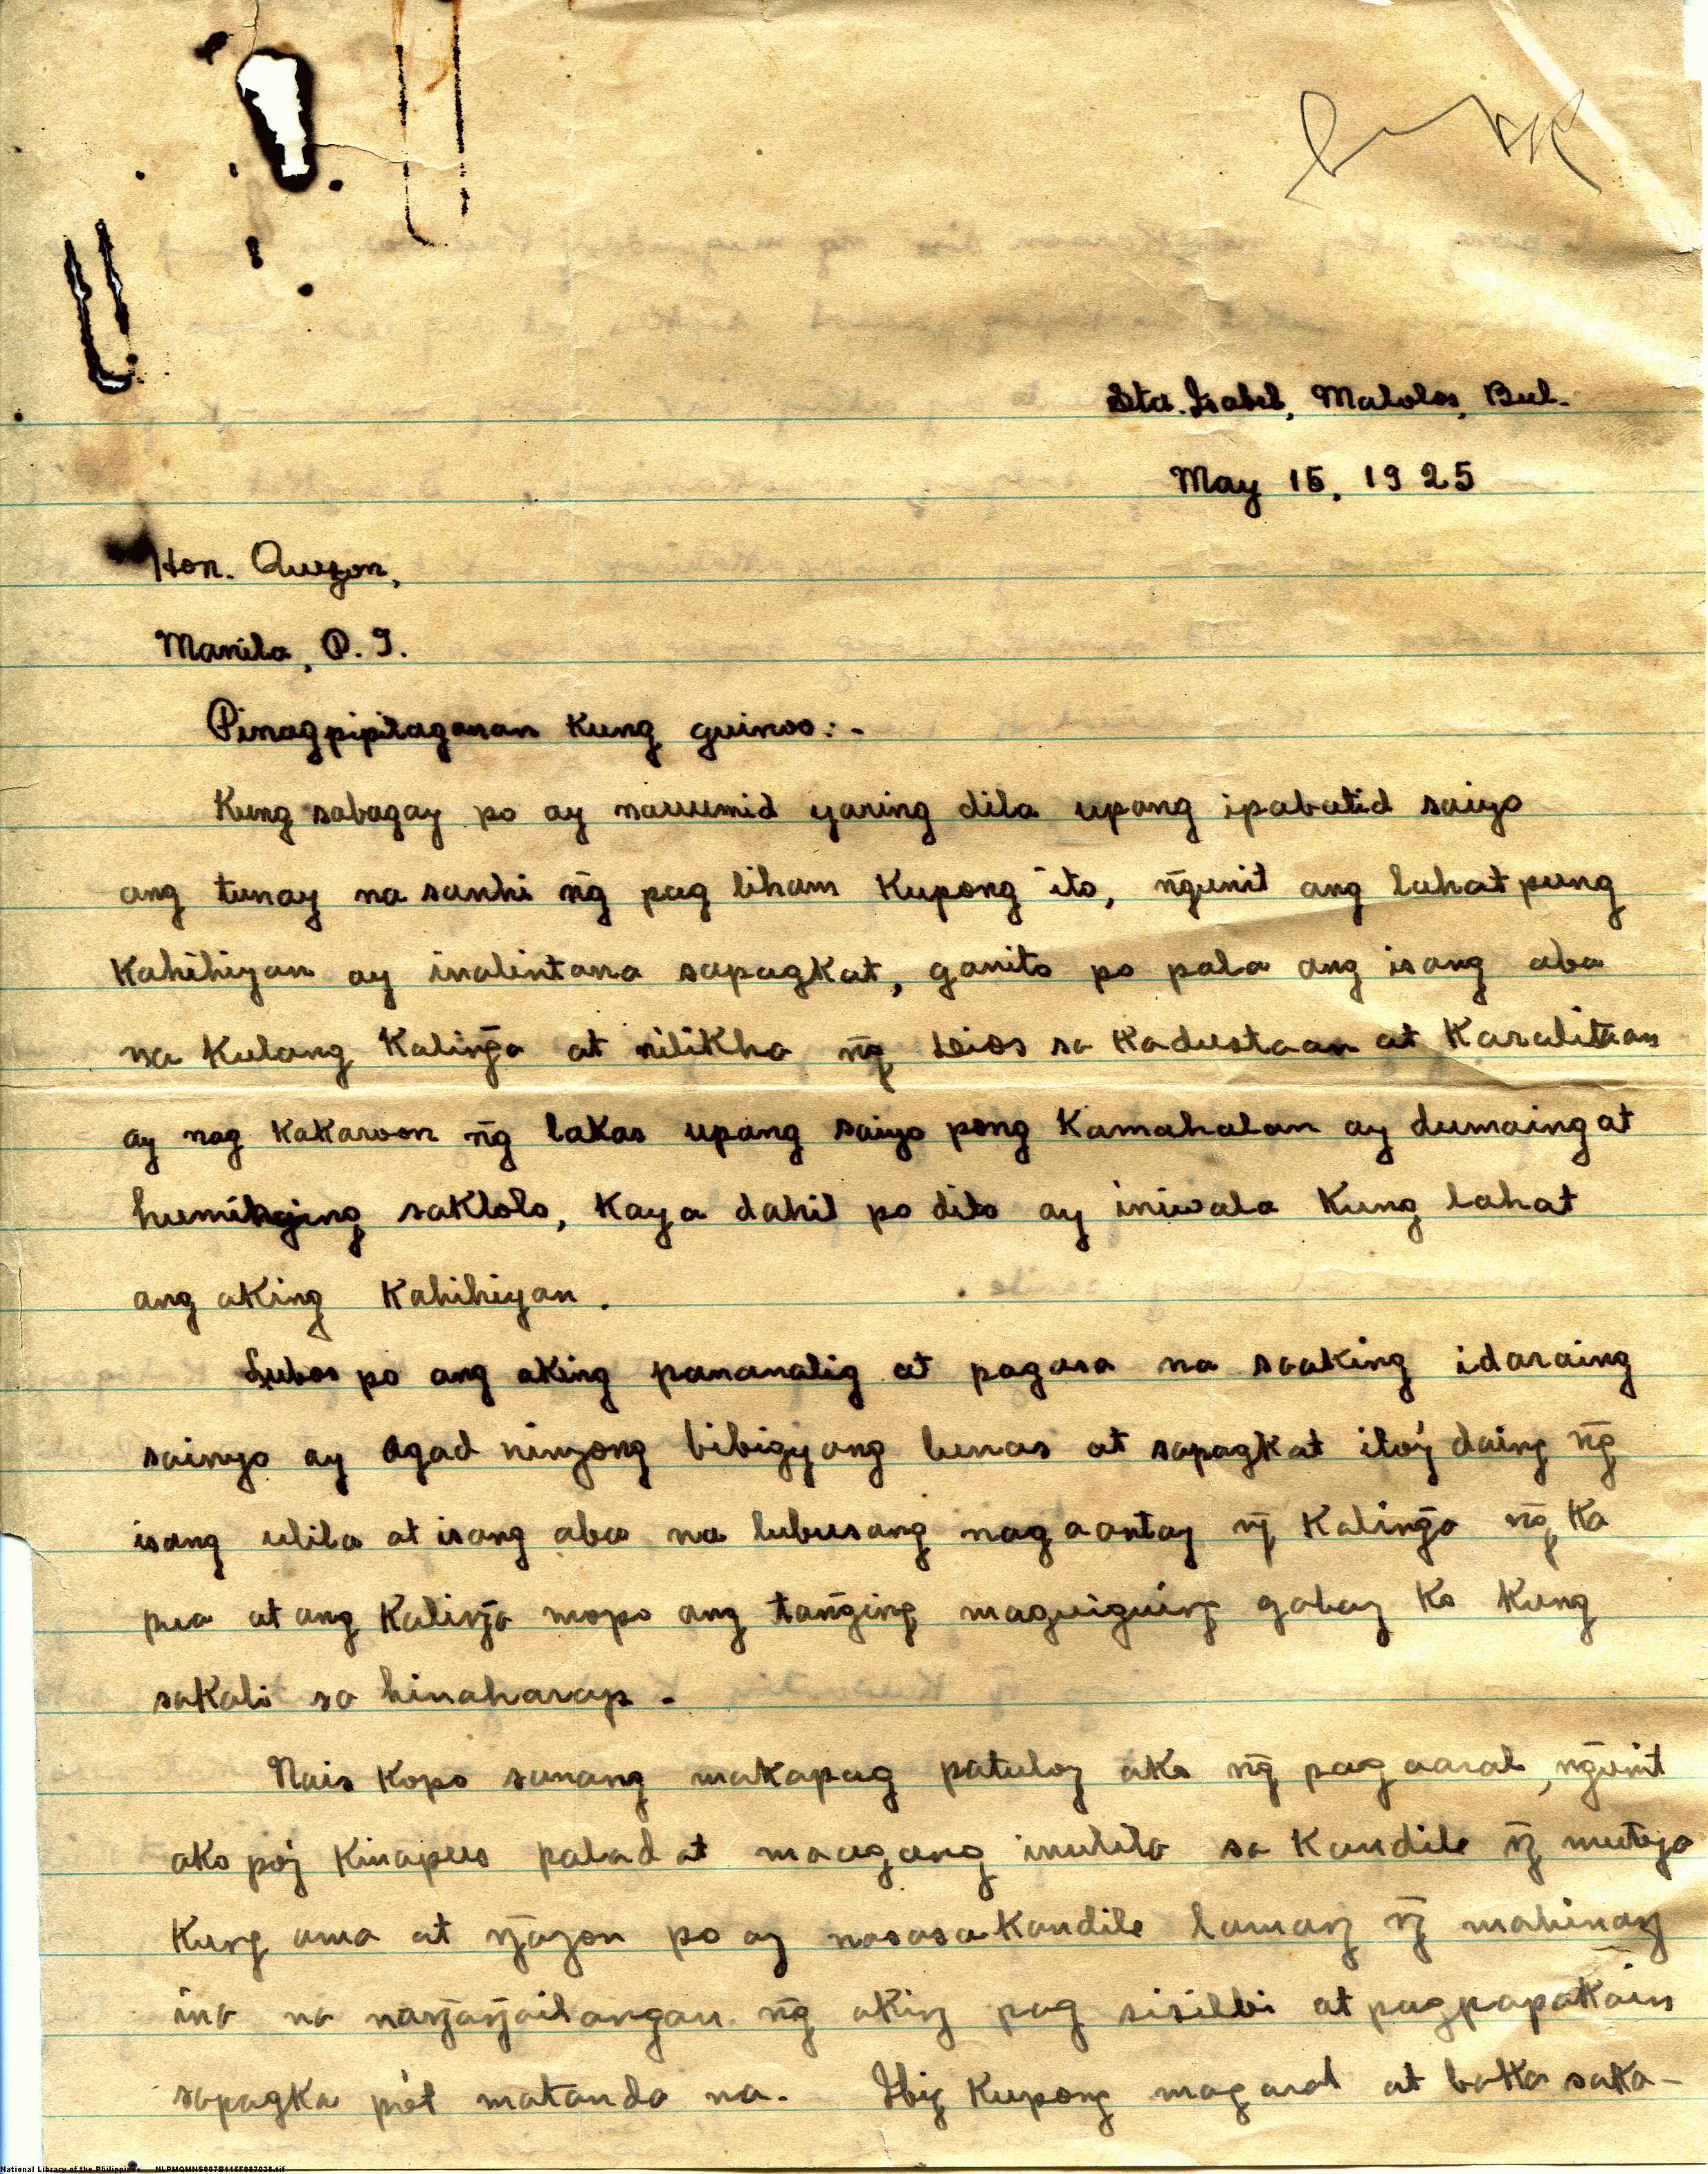 Sta. Isabel, Malolos, Bul.
May 15, 1925
Hon. Quezon,
Manila, P. I.
Pinagpipitaganan Kung guinoo:-
Kung sabagay po ay nauumid yaring dila upang ipabatid saiyo
ang tunay na sanhi ng̃ pag liham Kupong ito, ng̃unit ang lahat pung
Kahihiyan ay inalintana sapagkat, ganito po pala ang isang aba
na Kulang Kaling̃a at nilikha ng̃ Dios sa Kadustaan at Karalitaan
ay nag Kakaroon ng̃ lakas upang saiyo pong Kamahalan ay dumaing at
huminging saklolo, Kaya dahil po dito ay iniwala Kung lahat
ang aking Kahihiyan.
Lubos po ang aking pananalig at pagasa na saaking idaraing
sainyo ay agad ninyong bibigyang lunas at sapagkat ito'y daing ng̃
isang ulila at isang aba na lubusang nagaantay ng̃ Kaling̃a ng̃ Ka
pua at ang Kaling̃a mopo ang tang̃ing maguiguing gabay Ko Kung
sakali sa hinaharap.
Nais Kopo sanang makapag patuloy ako ng̃ pag aaral, ng̃unit
ako po'y Kinapus palad at maagang inulila sa Kandile ng̃ mutya
Kung ama at ng̃ayon po ay nasasa Kandile lamang ng̃ mahinang
ina na nang̃ang̃ailangan ng̃ aking pag sisilbi at pagpapakain
sapagka po't matanda na. Ibig Kupong magaral at baka saka-
National Library of the Philippines NLPMQMNS007B116F087038.tif